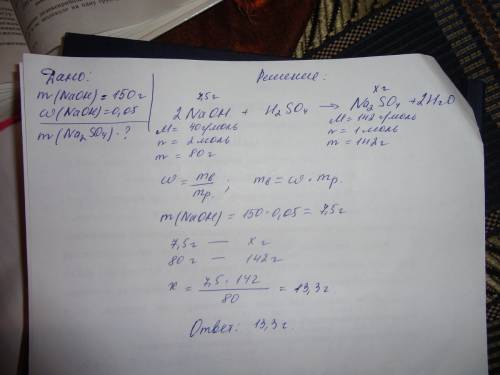 Дано:
m(NaOH) = 150 г
ω(NaOH) = 0,05
m(Na₂SO₄) - ?
Решение:
7,5г
x г
2NaOH + H₂SO₄ → Na₂SO₄ + 2H₂O
M = 40 г/моль
n = 2 моль
m = 80 г
M = 142 г/моль
n = 1 моль
m = 142 г
ω = mв/mр. ; mв = ω · mр.
m(NaOH) = 150 · 0,05 = 7,5 г
7,5 г — x г
80 г — 142 г
x = 7,5 · 142 / 80 = 13,3 г
Ответ: 13,3 г.